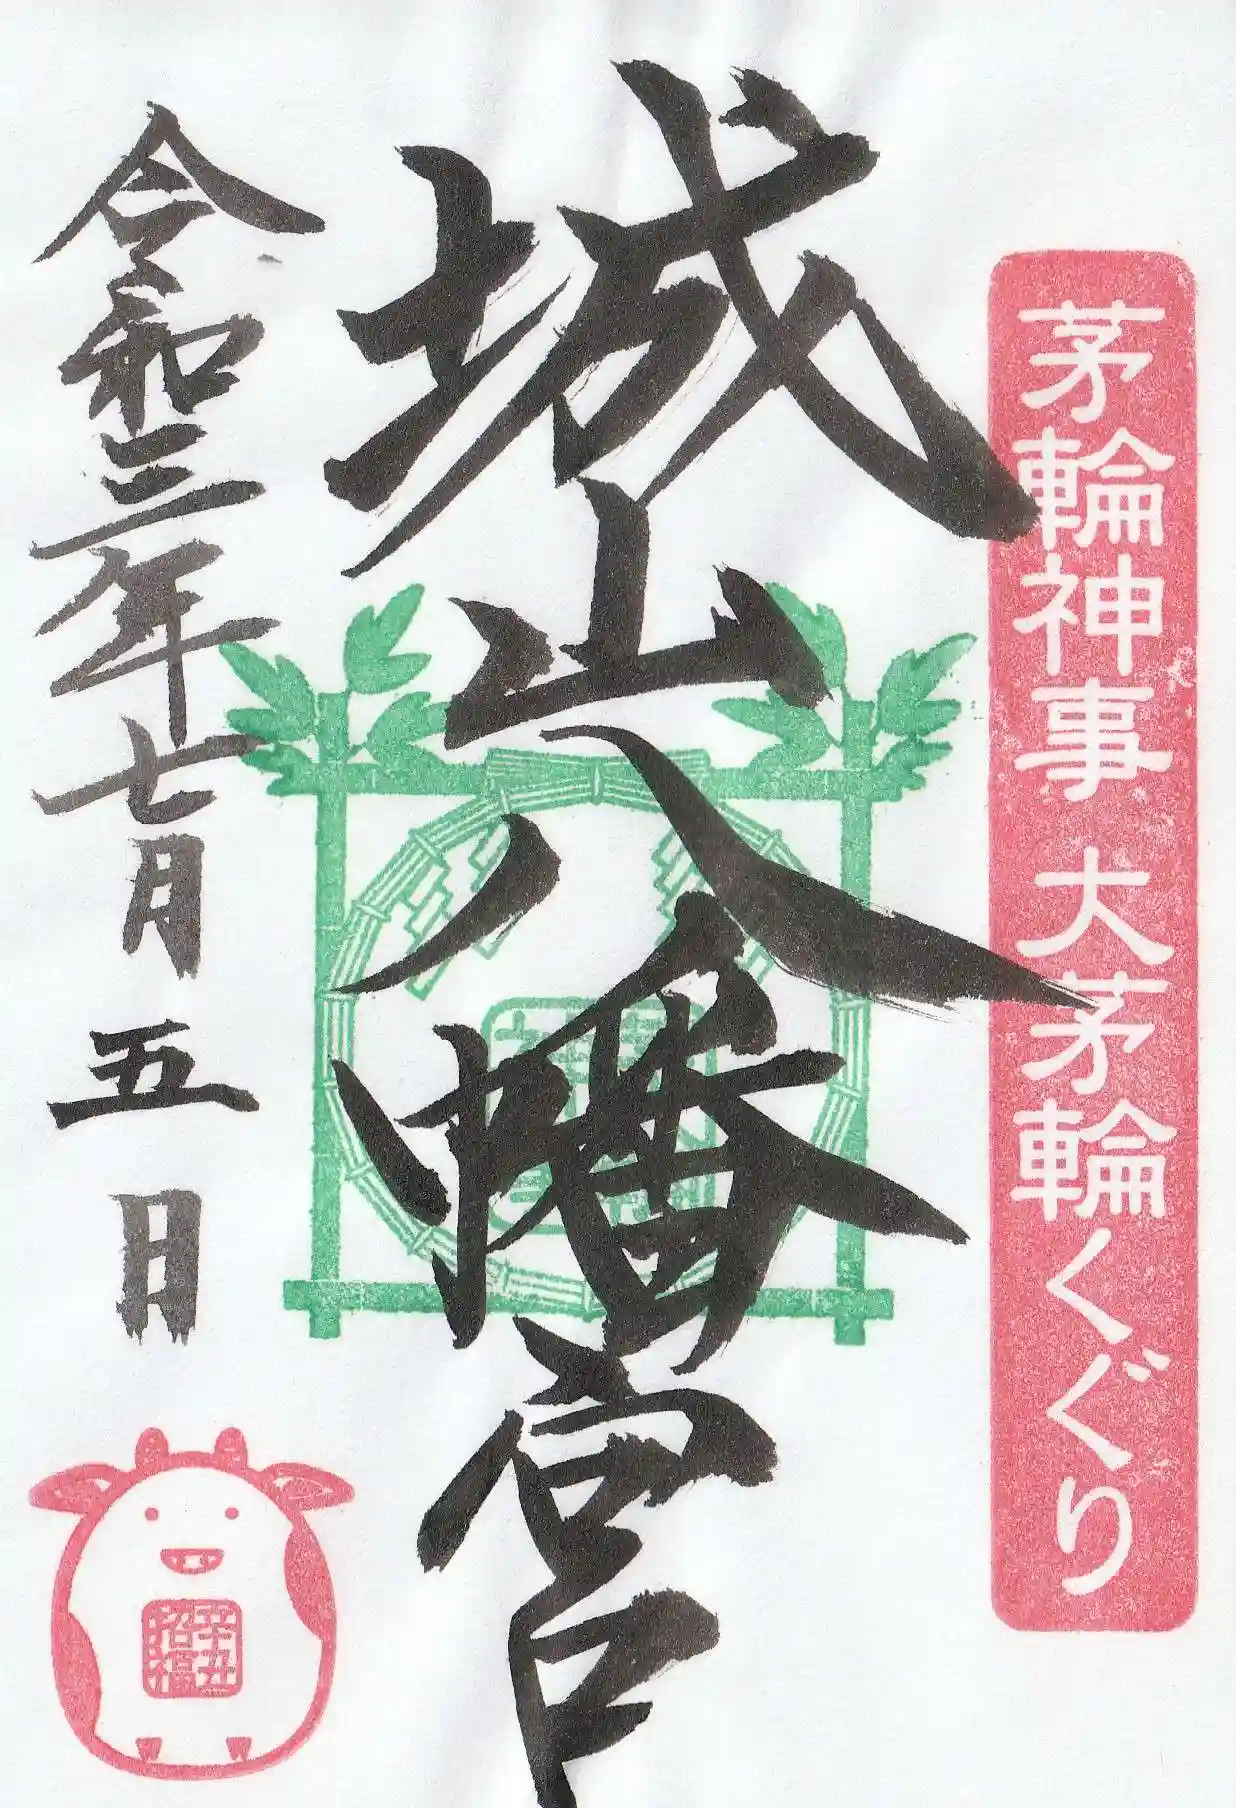 茅輪神事 大茅輪くぐり
城山八幡宮
令和三年七月五日
辛丑
招福